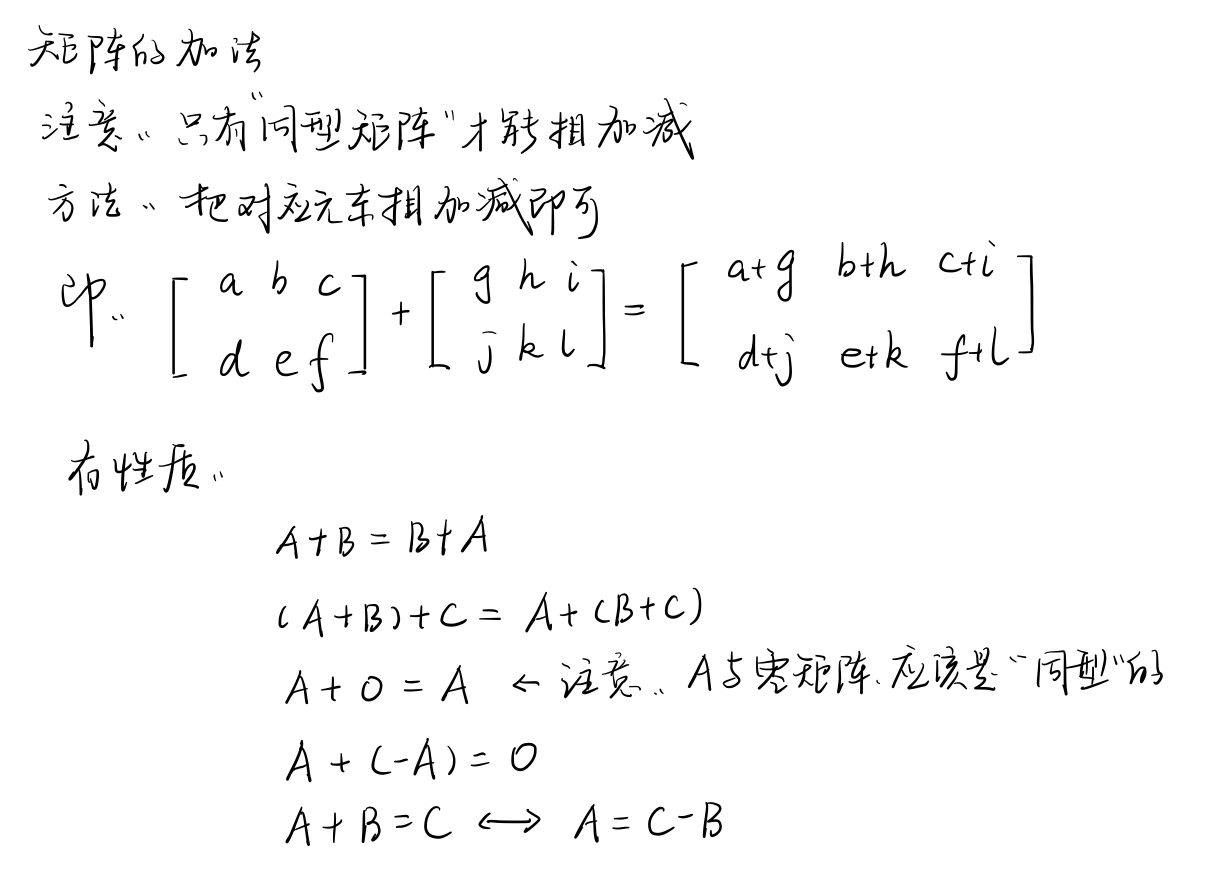 矩阵的加法
注意：只有"同型矩阵"才能相加减
方法：把对应元素相加减即可
即：[a b c; d e f] + [g h i; j k l] = [a+g b+h c+i; d+j e+k f+l]
有性质：
A+B=B+A
(A+B)+C=A+(B+C)
A+0=A ← 注意：A与零矩阵,应该是"同型"的
A+(-A)=0
A+B=C ⟷ A=C-B